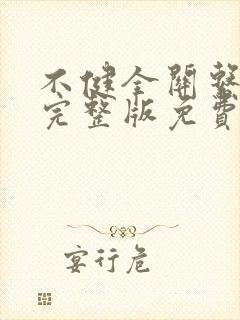 不健全關系
完整版免費
宴行危